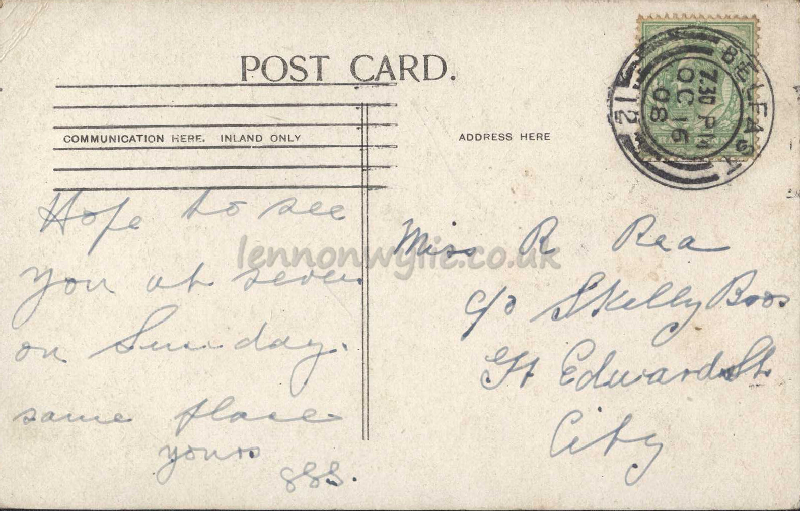 POST CARD.
COMMUNICATION HERE. INLAND ONLY
ADDRESS HERE
BELFAST
7.30 PM
OC 16
08
12
Hope to see
you at seven
on Sunday.
same place
yours
Miss R Rea
c/o Skelly Bros
Gt Edward St.
City
lennonwylie.co.uk